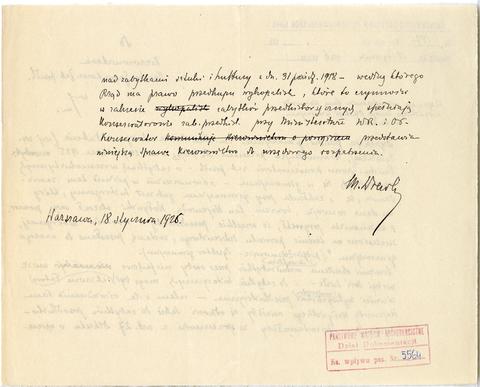 nad zabytkami sztuki i kultury z dn. 31 paźdz. 1918 – według którego
Rząd ma prawo przedkupu wykopalisk, które to czynności
w zakresie wykopalisk zabytków przedhistorycznych, spełniają
Konserwatorowie zab. przedhist. przy Ministerstwie W.R. i O.P.
Konserwator komunikując Kierownictwu o powyższem przedstawia
niniejszą sprawę Kierownictwu do urzędowego rozpatrzenia.
Warszawa, 18 stycznia 1926.
PAŃSTWOWE MUZEUM ARCHEOLOGICZNE
Dział Dokumentacji
Ks. wpływu poz. Nr. 5564